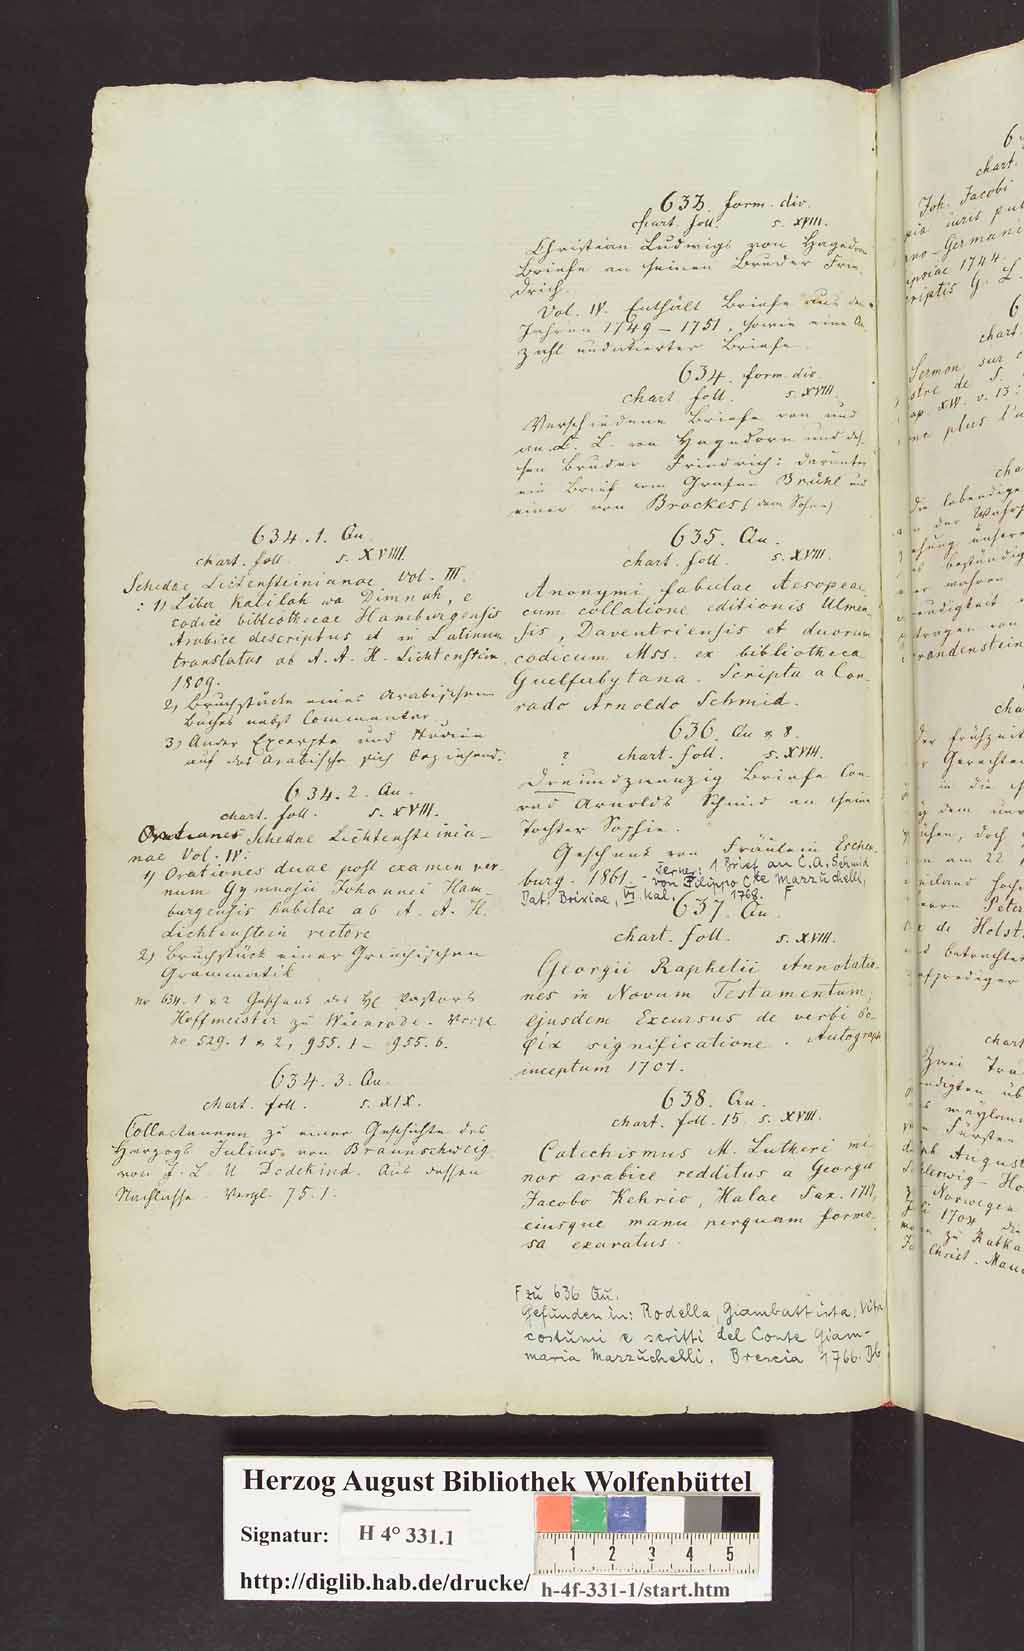 634. 1. Au.
chart. foll. s. XVIII.
Schedae Lichtensteinianae Vol. III.
: 1) Liber Kalilah wa Dimnah, e
codice bibliothecae Hamburgensis
Arabice descriptus et in Latinum
translatus ab A. A. H. Lichtenstein
1809.
2) Bruchstücke eines Arabischen
Buches nebst Commentar.
3) Ander Excerpte und Studien
auf das Arabische sich beziehend.
634. 2. Au.
chart. foll. s. XVIII.
Orationes Schedae Lichtensteinia-
nae Vol. IV:
1) Orationes duae post examen ver-
num Gymnasii Johannei Ham-
burgensis habitae ab A. A. H.
Lichtenstein rectore
2) Bruchstück einer Griechischen
Grammatik
no 634. 1 & 2 Geschenk des H. Pastors
Hoffmeister zu Wienrode. Vergl.
no 529. 1 & 2, 955. 1 – 955. 6.
634. 3. Au.
chart. foll. s. XIX.
Collectaneen zu einer Geschichte des
Herzogs Julius von Braunschweig
von J. L. U Dedekind. Aus dessen
Nachlasse. Vergl. 75. 1.
633. form. div.
chart. foll. s. XVIII.
Christian Ludwigs von Hagedorn
Briefe an seinen Bruder Frie-
drich.
Vol. IV. Enthält Briefe aus den
Jahren 1749 – 1751, sowie eine An-
zahl undatierter Briefe.
634. form. div.
chart foll. s. XVIII.
Verschiedene Briefe von und
an C. L. von Hagedorn und des-
sen Bruder Friedrich: darunter
ein Brief vom Grafen Brühl und
einer von Brockes (dem Sohne)
635. Au.
chart. foll. s. XVIII.
Anonymi fabulae Aesopeae
cum collatione editionis Ulmen
sis, Daventriensis et duorum
codicum Mss. ex bibliotheca
Guelferbytana. Scripta a Con-
rado Arnoldo Schmid.
636. Au & 8.
? chart. foll. s. XVIII.
Dreiundzwanzig Briefe Con-
rad Arnolds Schmid an seine
Tochter Sophie.
Geschenk von Fräulein Eschen-
burg. 1861. - Ferner: 1 Brief an C. A. Schmid
von Filippo Cte Marzuchelli,
Dat. Brixiae, VI. Kal. 1768. F
637. Au.
chart. foll. s. XVIII.
Georgii Raphelii Annotatio-
nes in Novum Testamentum,
ejusdem Excursus de verbi
significatione. Autograph
inceptum 1701.
638. Au.
chart. foll. 15. s. XVIII.
Catechismus M. Lutheri mi-
nor arabice redditus a Georgio
Jacobo Kehrio, Halae Sax. 1717,
eiusque manu perquam formo-
sa exaratus.
F zu 636 Au.
Gefunden in: Rodella, Giambattista, Vita
costumi e scritti del Conte Giam-
maria Mazzuchelli. Brescia 1766.
Herzog August Bibliothek Wolfenbüttel
Signatur: H 4° 331.1
http://diglib.hab.de/drucke/ h-4f-331-1/start.htm
1 2 3 4 5